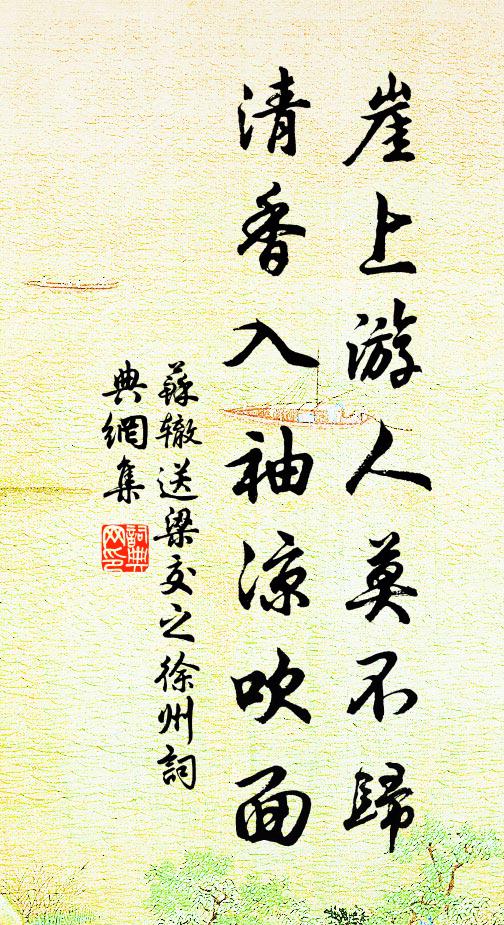 崖上游人莫不歸
清香入袖凉吹面
蘇辙送梁交之徐州詞
典網集
詞典
网印